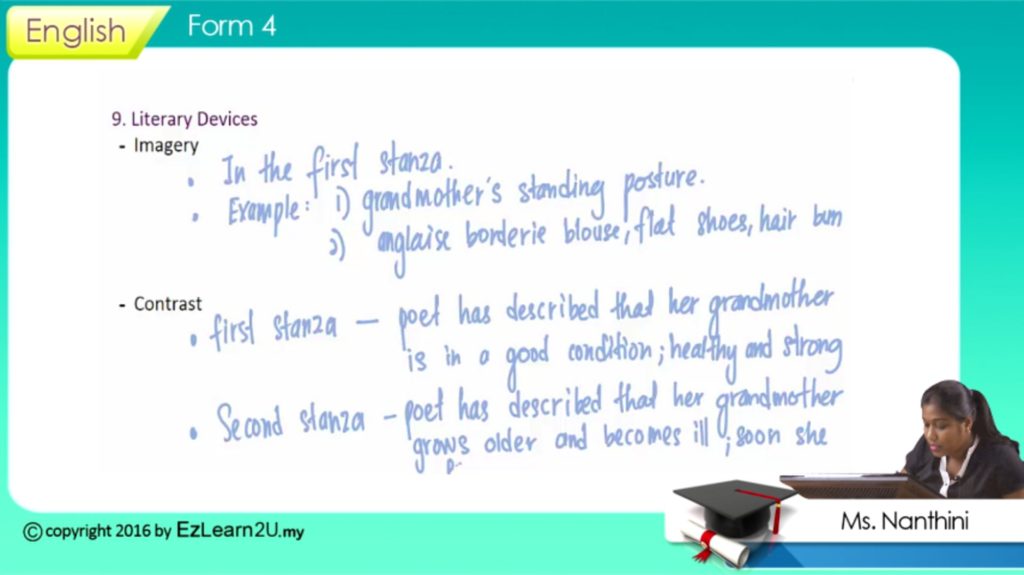 English
Form 4
9. Literary Devices
- Imagery
• In the first stanza.
• Example: 1) grandmother's standing posture.
2) anglaise borderie blouse, flat shoes, hair bun
- Contrast
• first stanza — poet has described that her grandmother
is in a good condition; healthy and strong
• Second stanza – poet has described that her grandmother
grows older and becomes ill; soon she
p
Ms. Nanthini
© copyright 2016 by EzLearn2U.my